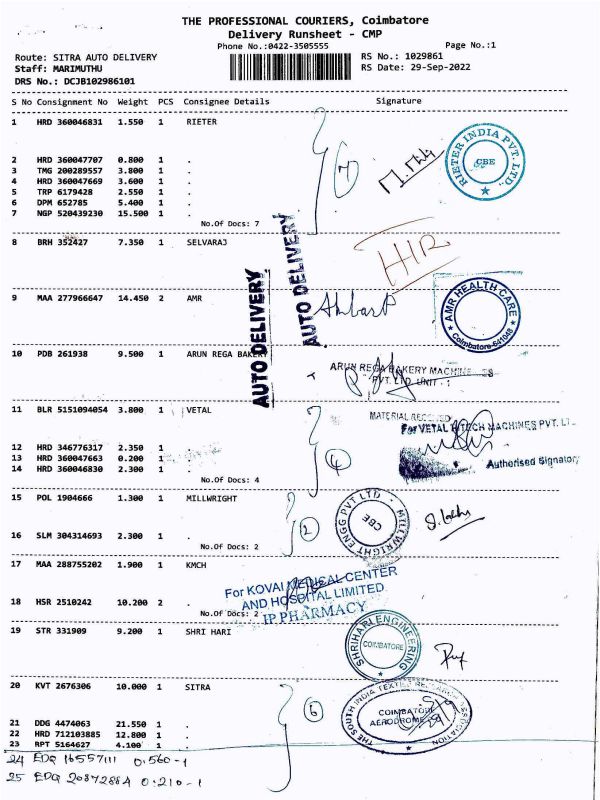 THE PROFESSIONAL COURIERS, Coimbatore
Delivery Runsheet - CMP
Phone No.:0422-3505555
Page No.:1
Route: SITRA AUTO DELIVERY
RS No.: 1029861
Staff: MARIMUTHU
RS Date: 29-Sep-2022
DRS No.: DCJB102986101
S No Consignment No Weight PCS Consignee Details Signature
1 HRD 360046831 1.550 1 RIETER
RIETER INDIA PVT. LTD., CBE
2 HRD 360047707 0.800 1 .
3 TMG 200289557 3.800 1 .
4 HRD 360047669 3.600 1 .
5 TRP 6179428 2.550 1 .
6 DPM 652785 5.400 1 .
7 NGP 520439230 15.500 1 .
7
No.Of Docs: 7
8 BRH 352427 7.350 1 SELVARAJ
AUTO DELIVERY
AUTO DELIVERY
9 MAA 277966647 14.450 2 AMR
AMR HEALTH CARE
Coimbatore-641048
10 PDB 261938 9.500 1 ARUN REGA BAKERY
ARUN REGA BAKERY MACHINERIES
PVT. LTD. UNIT - 1
11 BLR 5151094054 3.800 1 VETAL
MATERIAL RECEIVED
For VETAL HITECH MACHINES PVT. LTD.
12 HRD 346776317 2.350 1 .
13 HRD 360047663 0.200 1 .
14 HRD 360046830 2.300 1 .
4
Authorised Signatory
No.Of Docs: 4
15 POL 1904666 1.300 1 MILLWRIGHT
MILLWRIGHT ENGG PVT LTD CBE
2
16 SLM 304314693 2.300 1 .
No.Of Docs: 2
17 MAA 288755202 1.900 1 KMCH
For KOVAI MEDICAL CENTER
AND HOSPITAL LIMITED
IP PHARMACY
18 HSR 2510242 10.200 2 .
No.Of Docs: 2
19 STR 331909 9.200 1 SHRI HARI
SHRIHARI ENGINEERING
COIMBATORE
20 KVT 2676306 10.000 1 SITRA
THE SOUTH INDIA TEXTILE RESEARCH ASSOCIATION
COIMBATORE
AERODROME
21 DDG 4474063 21.550 1 .
22 HRD 712103885 12.800 1 .
23 RPT 5164627 4.100 1 .
24 EDQ 16557111 0.560-1
25 EDQ 20872884 0.210-1